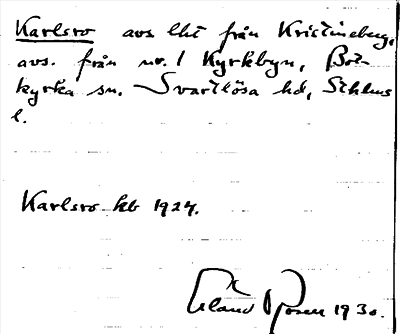 Karlsro avs. lht från Kristineberg,
avs. från nr. 1 Kyrkbyn, Bot-
kyrka sn. Svartlösa hd, Sthlms
l.
Karlsro hb 1924.
Erland Rosell 1930.